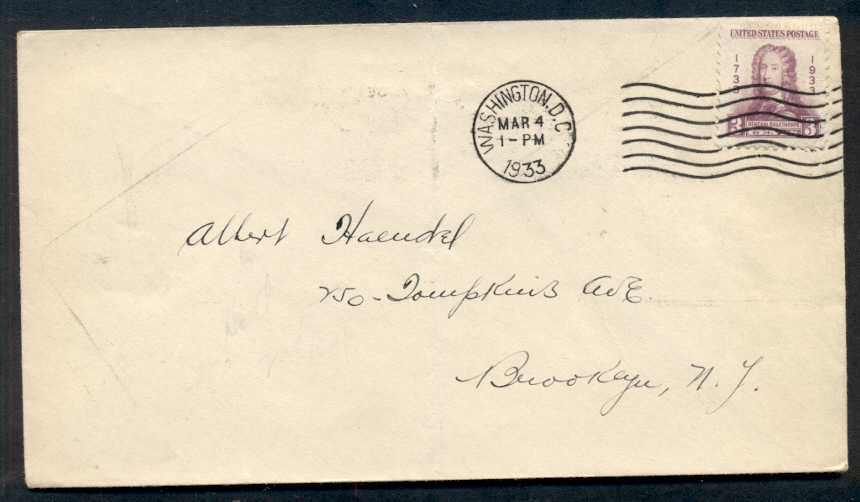 UNITED STATES POSTAGE
1733
1933
3 GENERAL OGLETHORPE 3
WASHINGTON, D.C.
MAR 4
1-PM
1933
Albert Haendel
250-Tompkins Ave.
Brooklyn, N.Y.